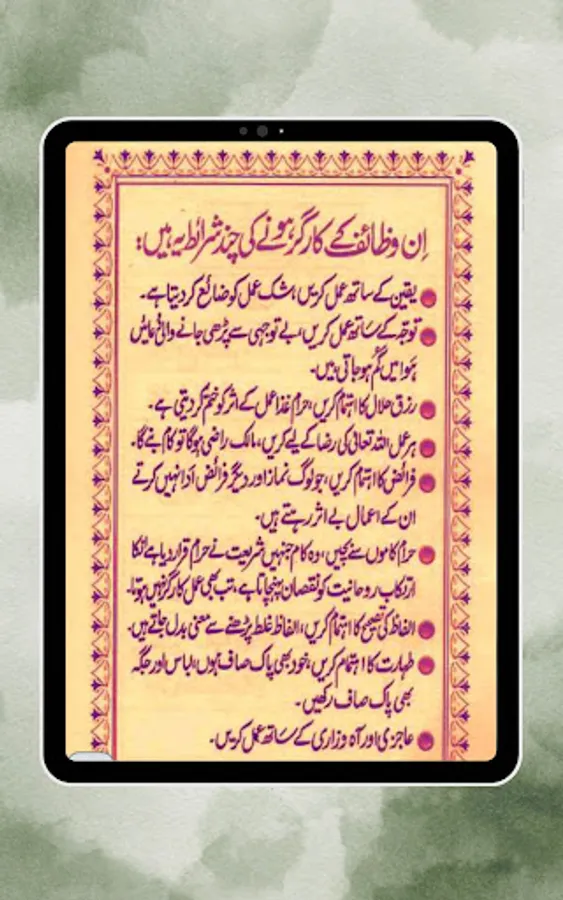 اِن وظائف کے کارگر ہونے کی چند شرائط یہ ہیں:
یقین کے ساتھ عمل کریں، شک عمل کو ضائع کر دیتا ہے۔
توجّہ کے ساتھ عمل کریں، بے توجہی سے پڑھی جانے والی دُعائیں
ہَوا میں گُم ہو جاتی ہیں۔
رزق حلال کا اہتمام کریں، حرام غذا عمل کے اثر کو ختم کر دیتی ہے۔
ہر عمل اللہ تعالیٰ کی رضا کے لیے کریں، مالک راضی ہوگا تو کام بنے گا۔
فرائض کا اہتمام کریں، جو لوگ نماز اور دیگر فرائض اَدا نہیں کرتے
ان کے اعمال بے اثر رہتے ہیں۔
حرام کاموں سے بچیں، وہ کام جنہیں شریعت نے حرام قرار دیا ہے انکا
ارتکاب روحانیت کو نقصان پہنچاتا ہے، تب بھی عمل کارگر نہیں ہوتا۔
الفاظ کی تصحیح کا اہتمام کریں، الفاظ غلط پڑھنے سے معنی بدل جاتے ہیں۔
طہارت کا اہتمام کریں، خود بھی پاک صاف ہوں، لباس اور جگہ
بھی پاک صاف رکھیں۔
عاجزی اور آہ وزاری کے ساتھ عمل کریں۔